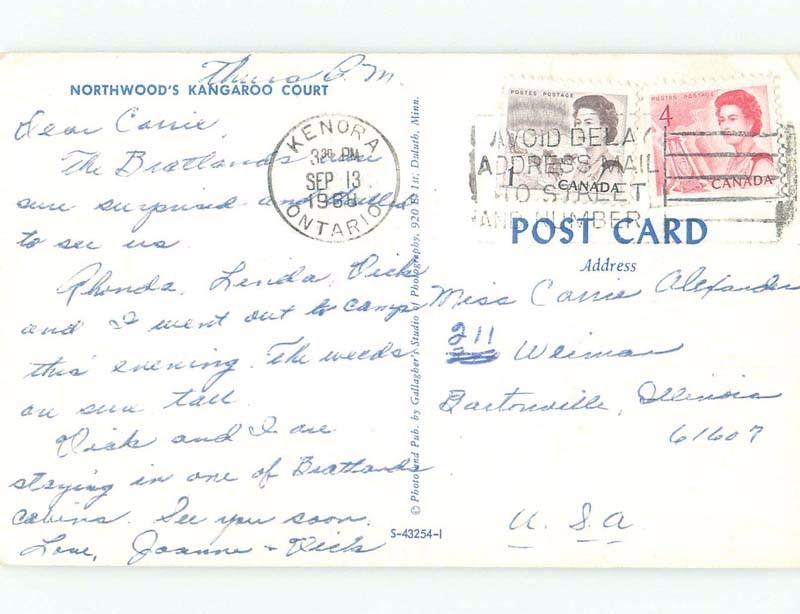 Thurs P.M.
NORTHWOOD'S KANGAROO COURT
Dear Carrie,
The Bratlands were
sure surprised and thrilled
to see us.
Rhonda, Linda, Dick
and I went out to camp
this evening. The weeds
are sure tall.
Dick and I are
staying in one of Bratlands
cabins. See you soon.
Love, Joanne & Dick
KENORA
3 PM
SEP 13
1968
ONTARIO
© Photo and Pub. by Gallagher's Studio of Photography, 920 E. 1st, Duluth, Minn.
S-43254-1
POSTES POSTAGE
1
CANADA
POSTES POSTAGE
4
CANADA
AVOID DELAY
ADDRESS MAIL
TO STREET
AND NUMBER
POST CARD
Address
Miss Carrie Alexander
211 Weimar
Bartonville, Illinois
61607
U.S.A